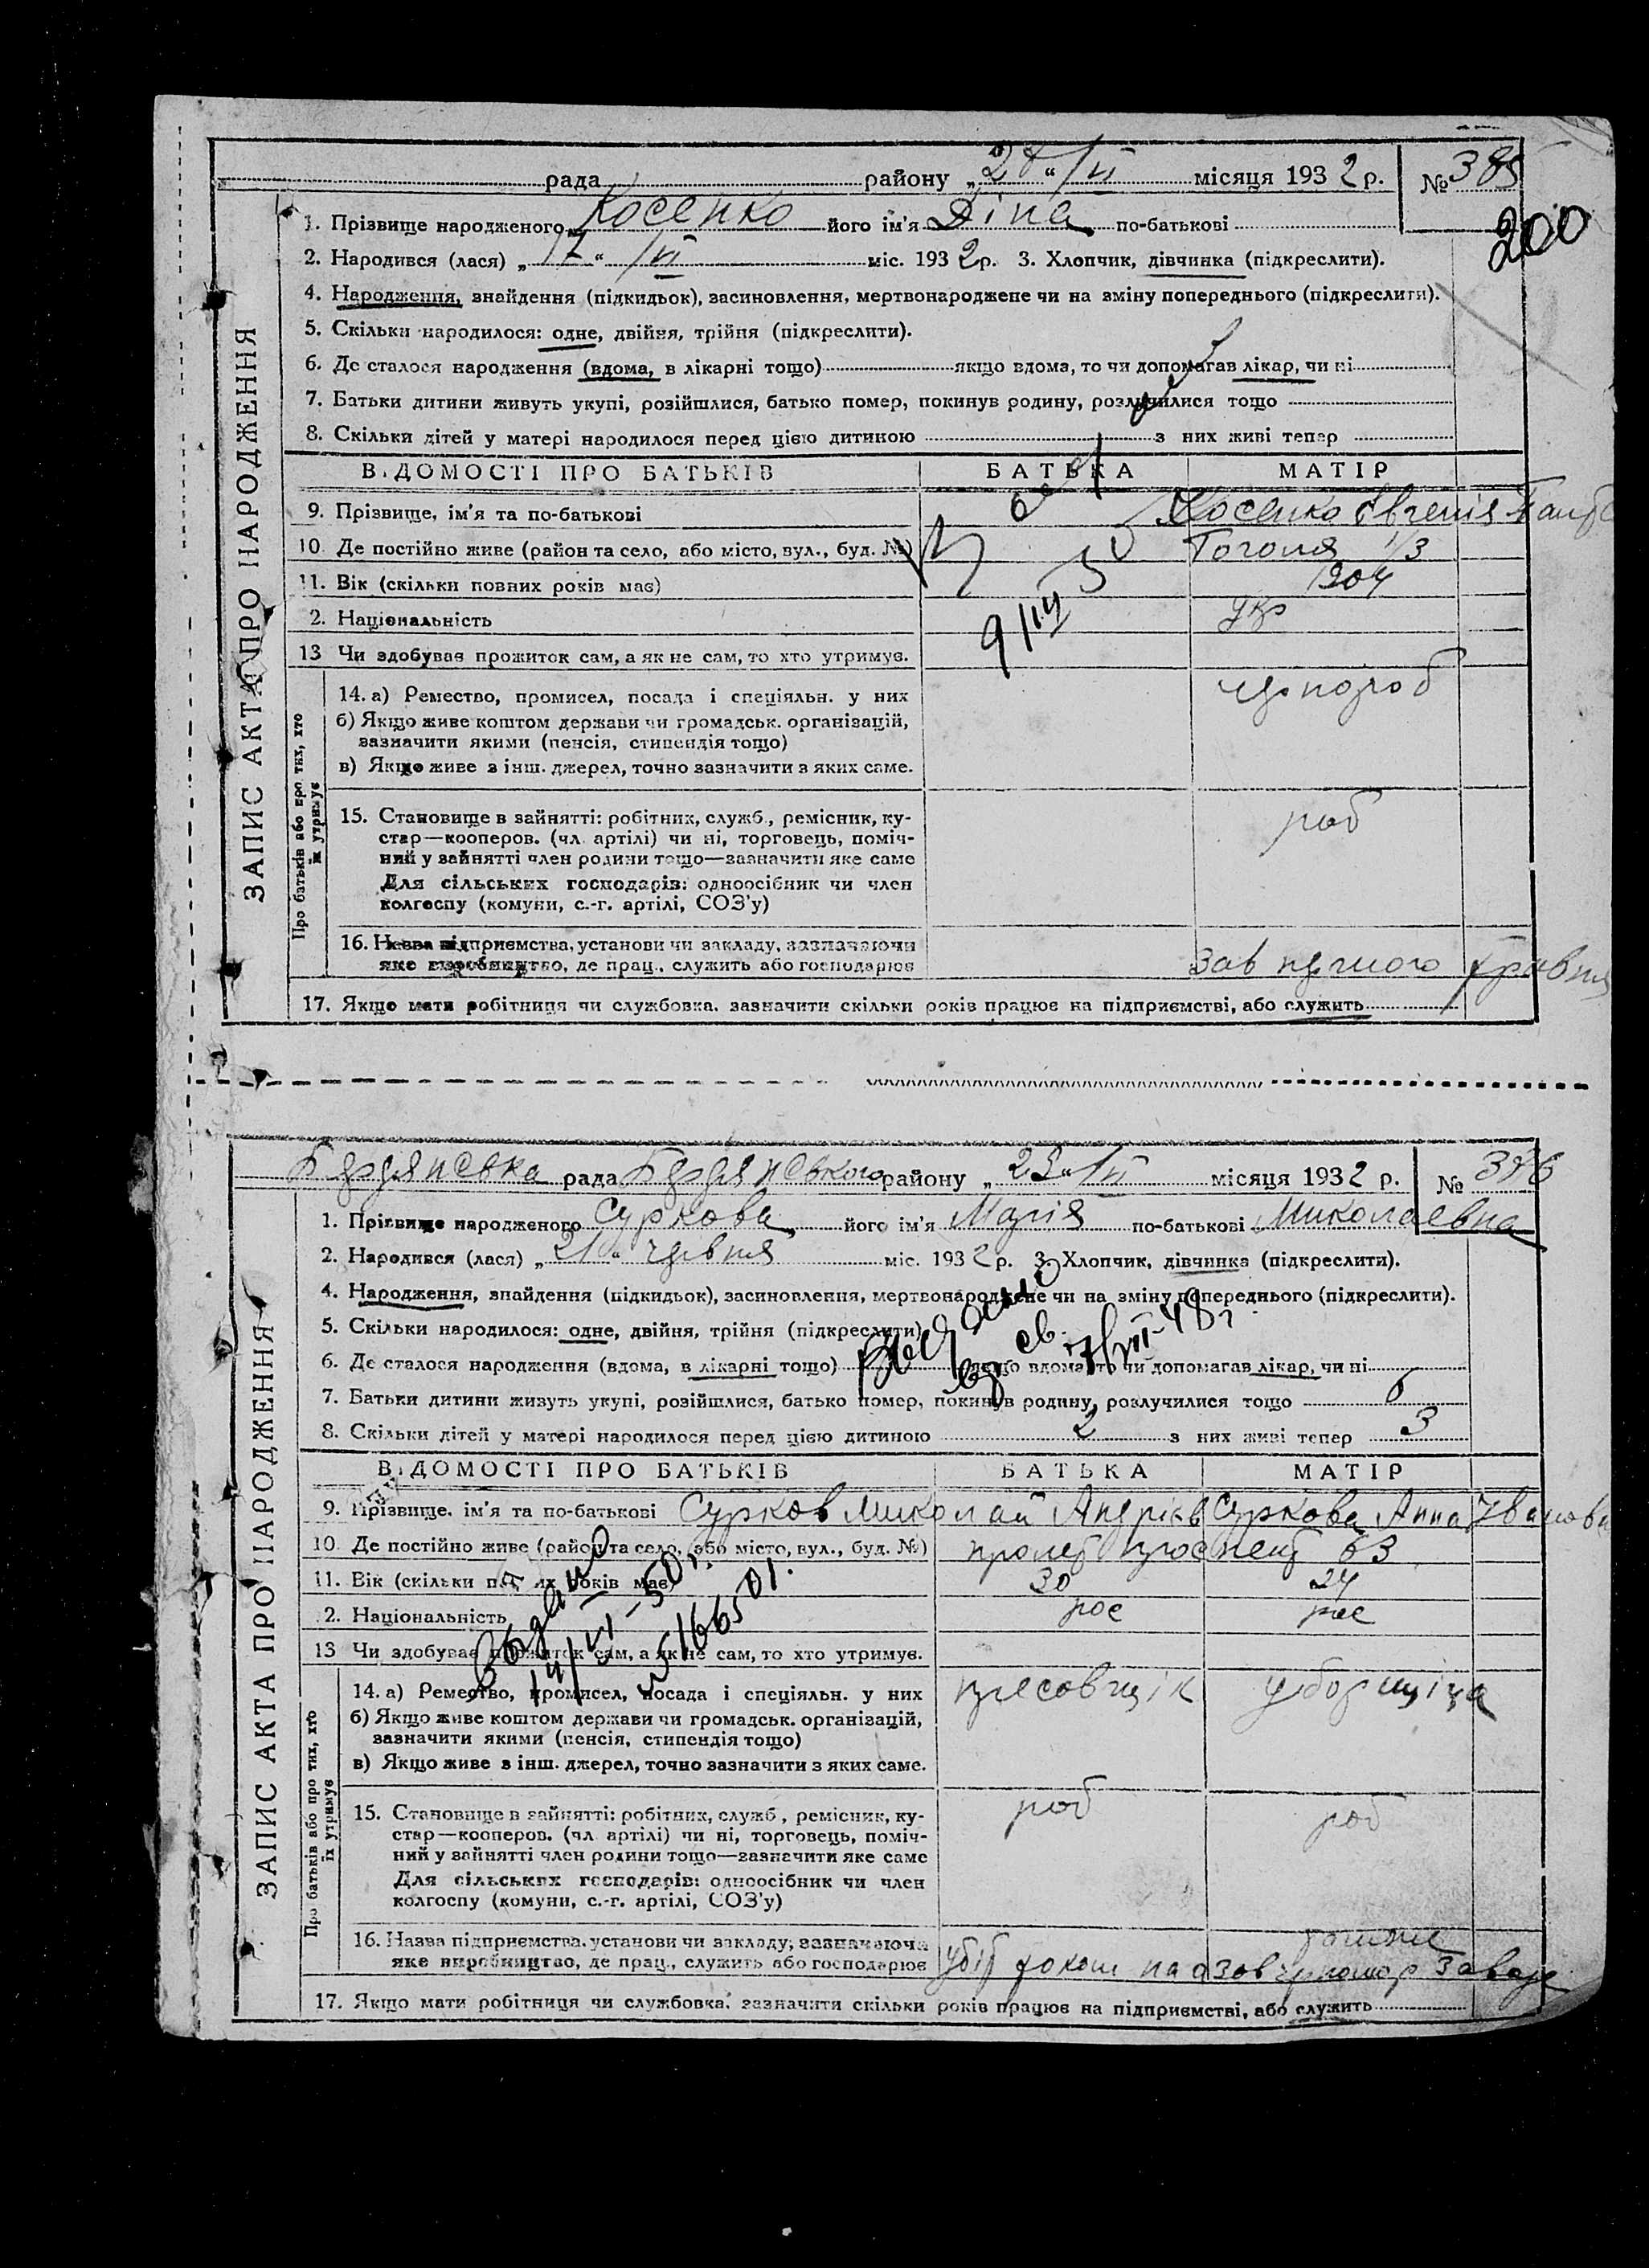 рада района „28“ /VI місяця 1932 р. № 385
200
1. Прізвище народженого Косенко його ім'я Діна по-батькові
2. Народився (лася) „17“ /VI міс. 1932 р. 3. Хлопчик, дівчинка (підкреслити).
4. Народження, знайдення (підкидьок), засиновлення, мертвонароджене чи на зміну попереднього (підкреслити).
5. Скільки народилося: одне, двійня, трійня (підкреслити).
6. Де сталося народження (вдома, в лікарні тощо) якщо вдома, то чи допомагав лікар, чи ні
7. Батьки дитини живуть укупі, розійшлися, батько помер, покинув родину, розлучилися тощо
8. Скільки дітей у матері народилося перед цією дитиною з них живі тепер
ВІДОМОСТІ ПРО БАТЬКІВ БАТЬКА МАТІР
9. Прізвище, ім'я та по-батькові Косенко Євгенія
10. Де постійно живе (район та село, або місто, вул., буд. №) Гоголя 1/3
11. Вік (скільки повних років має) 1904
2. Національність укр
9/III
13 Чи здобуває прожиток сам, а як не сам, то хто утримує.
14. а) Ремество, промисел, посада і спеціяльн. у них чорнороб
б) Якщо живе коштом держави чи громадськ. організацій,
зазначити якими (пенсія, стипендія тощо)
в) Якщо живе з інш. джерел, точно зазначити з яких саме.
15. Становище в зайнятті: робітник, служб., ремісник, ку-
стар—кооперов. (чл. артілі) чи ні, торговець, поміч-
ний у зайнятті член родини тощо—зазначити яке саме
роб
Для сільських господарів: одноосібник чи член
колгоспу (комуни, с.-г. артілі, СОЗ'у)
16. Назва підприємства, установи чи закладу, зазначаючи
яке виробництво, де прац., служить або господарює Зав першого травня
17. Якщо мати робітниця чи службовка, зазначити скільки років працює на підприємстві, або служить
ЗАПИС АКТА ПРО НАРОДЖЕННЯ
Про батьків або про тих, хто їх утримує
Бердянська рада Бердянського району „23“ /VI місяця 1932 р. № 386
1. Прізвище народженого Суркова його ім'я Марія по-батькові Миколаевна
2. Народився (лася) „21“ червня міс. 1932 р. 3. Хлопчик, дівчинка (підкреслити).
4. Народження, знайдення (підкидьок), засиновлення, мертвонароджене чи на зміну попереднього (підкреслити).
5. Скільки народилося: одне, двійня, трійня (підкреслити).
св. 7/VIII-48г
6. Де сталося народження (вдома, в лікарні тощо) якщо вдома, то чи допомагав лікар, чи ні
7. Батьки дитини живуть укупі, розійшлися, батько помер, покинув родину, розлучилися тощо
8. Скільки дітей у матері народилося перед цією дитиною 2 з них живі тепер 3
ВІДОМОСТІ ПРО БАТЬКІВ БАТЬКА МАТІР
9. Прізвище, ім'я та по-батькові Сурков Миколай Андрієв Суркова Анна Іванови
10. Де постійно живе (район та село, або місто, вул., буд. №) пролет проспект 63
11. Вік (скільки повних років має) 30 24
2. Національність рос рос
Выдано
14/VI-50г.
№ 166501.
13 Чи здобуває прожиток сам, а як не сам, то хто утримує.
14. а) Ремество, промисел, посада і спеціяльн. у них пресовщік уборщіца
б) Якщо живе коштом держави чи громадськ. організацій,
зазначити якими (пенсія, стипендія тощо)
в) Якщо живе з інш. джерел, точно зазначити з яких саме.
15. Становище в зайнятті: робітник, служб., ремісник, ку- роб роб
стар—кооперов. (чл. артілі) чи ні, торговець, поміч-
ний у зайнятті член родини тощо—зазначити яке саме
Для сільських господарів: одноосібник чи член
колгоспу (комуни, с.-г. артілі, СОЗ'у)
16. Назва підприємства, установи чи закладу, зазначаючи
яке виробництво, де прац., служить або господарює
17. Якщо мати робітниця чи службовка, зазначити скільки років працює на підприємстві, або служить
ЗАПИС АКТА ПРО НАРОДЖЕННЯ
Про батьків або про тих, хто їх утримує